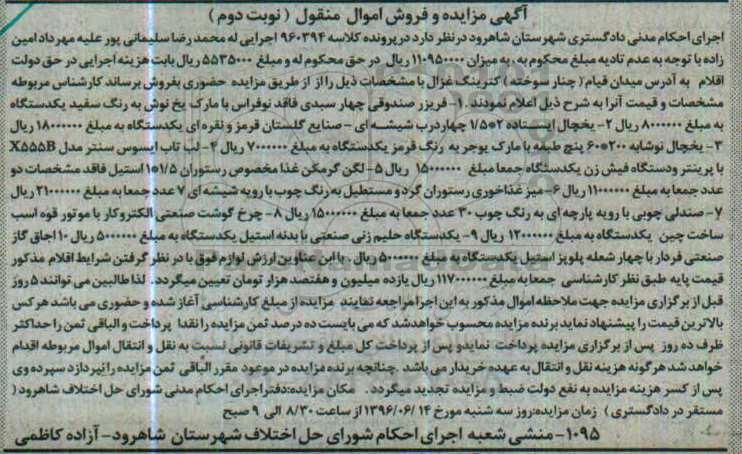 آگهی مزایده و فروش اموال منقول ( نوبت دوم )
اجرای احکام مدنی دادگستری شهرستان شاهرود در نظر دارد در پرونده کلاسه ۹۶۰۳۹۴ اجرایی له محمد رضا سلیمانی پور علیه مهرداد امین
زاده با توجه به عدم تادیه مبلغ محکوم به، به میزان ۱۱۰۹۵۰۰۰۰ ریال در حق محکوم له و مبلغ ۵۵۳۵۰۰۰ ریال بابت هزینه اجرایی در حق دولت
اقلام به آدرس میدان قیام ( چنار سوخته ) کترینگ غزال با مشخصات ذیل را از از طریق مزایده حضوری بفروش برساند کارشناس مربوطه
مشخصات و قیمت آنرا به شرح ذیل اعلام نمودند. ۱- فریزر صندوقی چهار سبدی فاقد نوفراس با مارک یخ نوش به رنگ سفید یکدستگاه
به مبلغ ۸۰۰۰۰۰۰ ریال ۲- یخچال ایستاده ۲*۱/۵ چهاردرب شیشه ای – صنایع گلستان قرمز و نقره ای یکدستگاه به مبلغ ۱۸۰۰۰۰۰۰ ریال
۳- یخچال نوشابه ۲۰۰*۶۰ پنج طبقه با مارک یوجر به رنگ قرمز یکدستگاه به مبلغ ۷۰۰۰۰۰۰ ریال ۴- لپ تاپ ایسوس سنتر مدل X555B
با پرینتر ودستگاه فیش زن یکدستگاه جمعا مبلغ ۱۵۰۰۰۰۰۰ ریال ۵- لگن گرمکن غذا مخصوص رستوران ۱/۵*۱ استیل فاقد مشخصات دو
عدد جمعا به مبلغ ۱۱۰۰۰۰۰۰ ریال ۶- میز غذاخوری رستوران گرد و مستطیل به رنگ چوب با رویه شیشه ای ۷ عدد جمعا به مبلغ ۲۱۰۰۰۰۰۰ ریال
۷- صندلی چوبی با رویه پارچه ای به رنگ چوب ۳۰ عدد جمعا به مبلغ ۱۵۰۰۰۰۰۰ ریال ۸- چرخ گوشت صنعتی الکتروکار با موتور قوه اسب
ساخت چین یکدستگاه به مبلغ ۱۲۰۰۰۰۰۰ ریال ۹- یکدستگاه حلیم زنی صنعتی با بدنه استیل یکدستگاه به مبلغ ۵۰۰۰۰۰۰ ریال ۱۰ اجاق گاز
صنعتی فردار با چهار شعله پلوپز استیل یکدستگاه به مبلغ ۵۰۰۰۰۰۰ ریال . با این عناوین ارزش لوازم فوق با در نظر گرفتن شرایط اقلام مذکور
قیمت پایه طبق نظر کارشناسی جمعا به مبلغ ۱۱۷۰۰۰۰۰۰ ریال یازده میلیون و هفتصد هزار تومان تعیین میگردد. لذا طالبین می توانند ۵ روز
قبل از برگزاری مزایده جهت ملاحظه اموال مذکور به این اجرا مراجعه نمایند مزایده از مبلغ کارشناسی آغاز شده و حضوری می باشد هر کس
بالاترین قیمت را پیشنهاد نماید برنده مزایده محسوب خواهد شد که می بایست ده درصد ثمن مزایده را نقدا پرداخت و الباقی ثمن را حداکثر
ظرف ده روز پس از برگزاری مزایده پرداخت نماید و پس از پرداخت کل مبلغ و تشریفات قانونی نسبت به نقل و انتقال اموال مربوطه اقدام
خواهد شد هر گونه هزینه نقل و انتقال به عهده خریدار می باشد .چنانچه برنده مزایده در موعود مقرر الباقی ثمن مزایده را نپردازد سپرده وی
پس از کسر هزینه مزایده به نفع دولت ضبط و مزایده تجدید میگردد . مکان مزایده:دفتر اجرای احکام مدنی شورای حل اختلاف شاهرود (
مستقر در دادگستری ) زمان مزایده:روز سه شنبه مورخ ۱۳۹۶/۰۶/۱۴ از ساعت ۸/۳۰ الی ۹ صبح
۱۰۹۵- منشی شعبه اجرای احکام شورای حل اختلاف شهرستان شاهرود- آزاده کاظمی